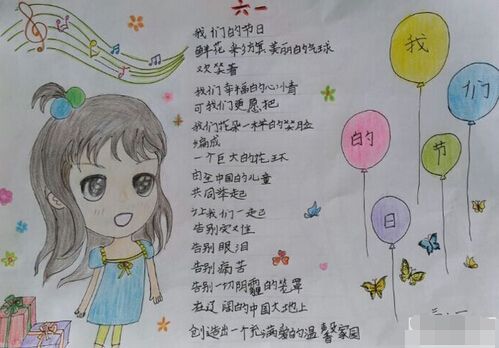 六一
我们的节日
鲜花 彩球 美丽的气球
欢笑着
我们幸福的心情
可我们更愿把
我们花朵一样的笑脸
编成
一个巨大的花环
由全中国的儿童
共同举起
让我们一起
告别灾难
告别眼泪
告别痛苦
告别一切阴霾的笼罩
在辽阔的中国大地上
创造出一个充满爱的温馨家园
我们的节日
三.一